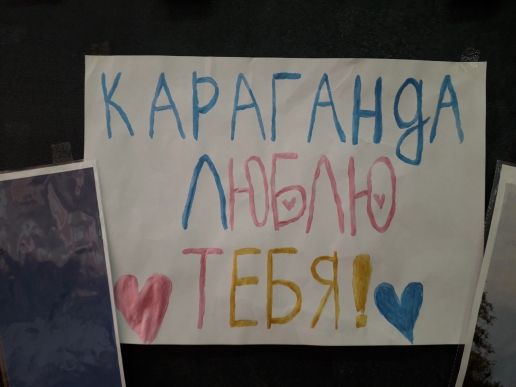 КАРАГАНДА
ЛЮБЛЮ
ТЕБЯ!